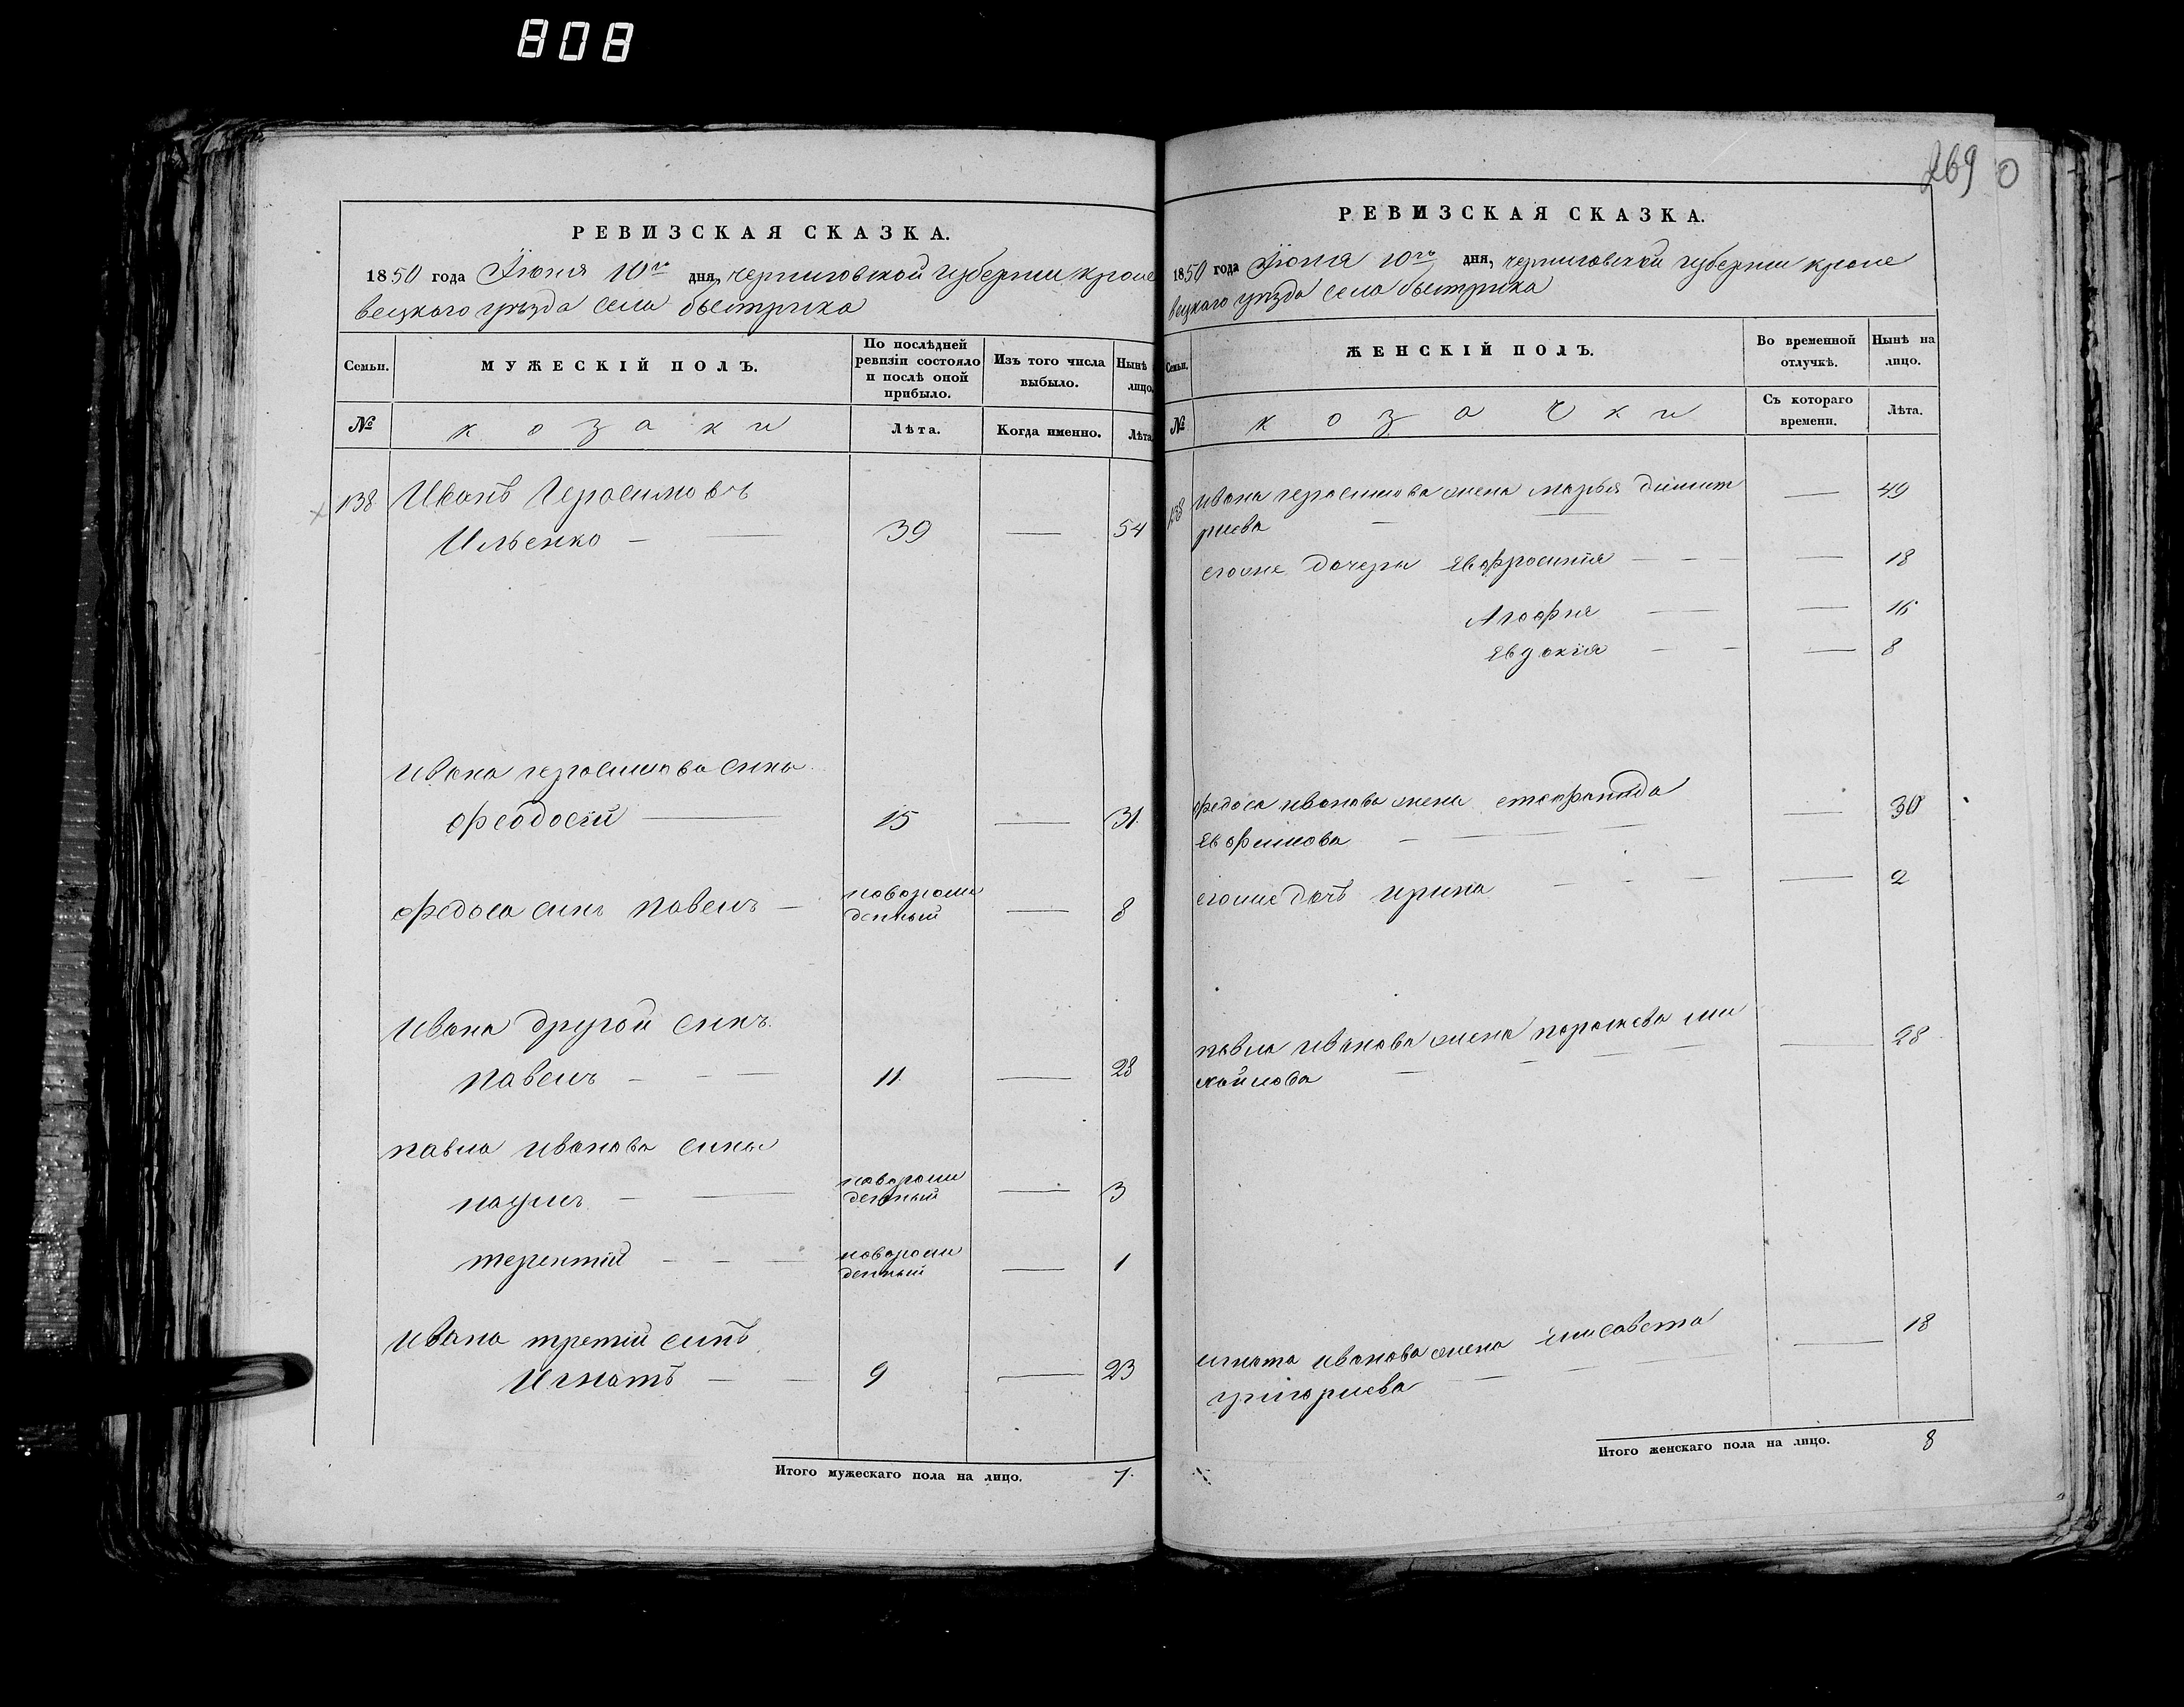 808
РЕВИЗСКАЯ СКАЗКА.
1850 года Іюня 10го дня, черниговской губерніи кроле
вецкаго уѣзда села быстрика
Семьи.
МУЖЕСКІЙ ПОЛЪ.
По послѣдней
ревизіи состояло
и послѣ оной
прибыло.
Изъ того числа
выбыло.
Нынѣ
лицо.
№
козаки
Лѣта.
Когда именно.
Лѣта
138 Иванъ Герасимовъ
Ильенко — — 39 — 54
Ивана герасимова сынъ
феодосій — 15 — 31.
федоса сынъ павелъ — новорож
денный — 8
Ивана другой сынъ.
павелъ — — — 11. — 28
павла иванова сыны
наумъ — — новорож
денный — 3
терентій — — — новорож
денный — 1
Ивана третій сынъ
Игнатъ — — 9 — 23
Итого мужескаго пола на лицо. 7.
269 0
РЕВИЗСКАЯ СКАЗКА.
1850 года Іюня 10го дня, черниговской губерніи кроле
вецкаго уѣзда села быстрика
Семьи.
ЖЕНСКІЙ ПОЛЪ.
Во временной
отлучкѣ.
Нынѣ на
лицо.
№
козачки
Съ котораго
времени.
Лѣта.
138 Ивана герасимова жена марья димит
ріева — — — 49
егоже дочери Евфросинія — — — — 18
Агафія — — — 16
Евдокія — — — 8
федоса иванова жена степанида
Евфимова — — — — 30
егоже дочь ирина — — — — 2
павла иванова жена параскева ми
хайлова — — — — — 28
игната иванова жена елисавета
григориева — — — — 18
Итого женскаго пола на лицо. 8